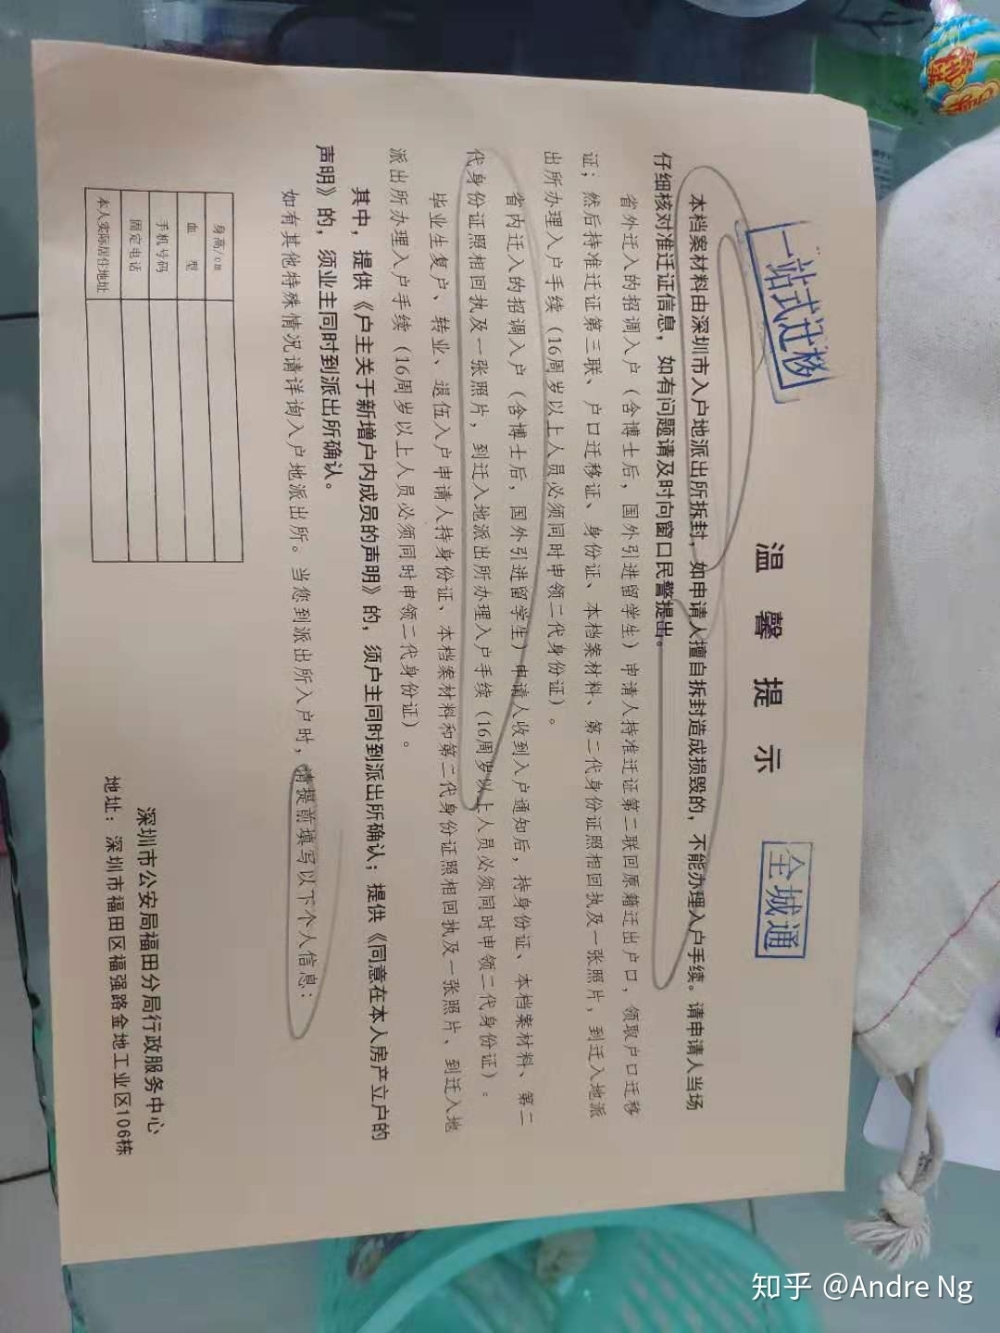 一站式迁移
温馨提示
全城通
本档案材料由深圳市入户地派出所拆封，如申请人擅自拆封造成损毁的，不能办理入户手续。请申请人当场
仔细核对准迁证信息，如有问题请及时向窗口民警提出。
省外迁入的招调入户（含博士后，国外引进留学生）申请人持准迁证第二联回原籍迁出户口，领取户口迁移
证；然后持准迁证第三联、户口迁移证、身份证、本档案材料、第二代身份证照相回执及一张照片，到迁入地派
出所办理入户手续（16周岁以上人员必须同时申领二代身份证）。
省内迁入的招调入户（含博士后，国外引进留学生）申请人收到入户通知后，持身份证、本档案材料、第二
代身份证照相回执及一张照片，到迁入地派出所办理入户手续（16周岁以上人员必须同时申领二代身份证）。
毕业生复户、转业、退伍入户申请人持身份证、本档案材料和第二代身份证照相回执及一张照片、到迁入地
派出所办理入户手续（16周岁以上人员必须同时申领二代身份证）。
其中，提供《户主关于新增户内成员的声明》的，须户主同时到派出所确认；提供《同意在本人房产立户的
声明》的，须业主同时到派出所确认。
如有其他特殊情况请详询入户地派出所。当您到派出所入户时，请提前填写以下个人信息：
身高/cm
血型
手机号码
固定电话
本人实际居住地址
深圳市公安局福田分局行政服务中心
地址：深圳市福田区福强路金地工业区106栋
知乎 @Andre Ng